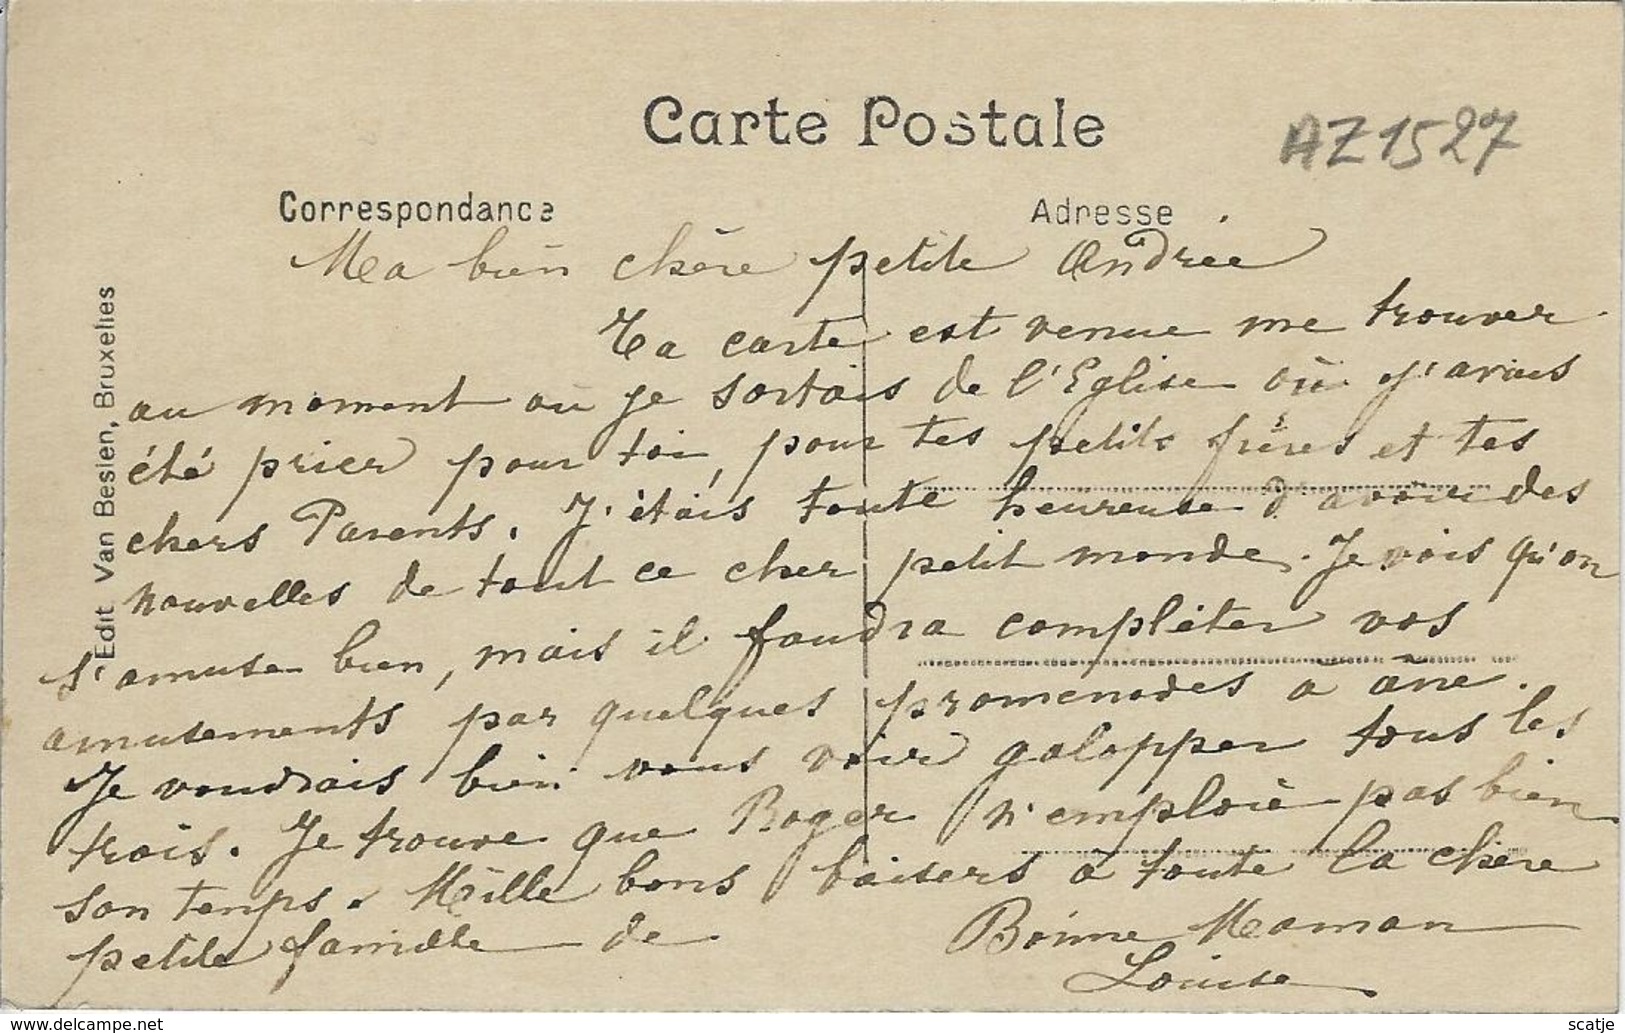 Carte Postale
AZ1527
Correspondance
Adresse
Edit. Van Besien, Bruxelles
Ma bien chère petite Andrée
Ta carte est venue me trouver
au moment où je sortais de l'Eglise où j'avais
été prier pour toi, pour tes petits frères et tes
chers Parents. J'étais toute heureuse d'avoir des
nouvelles de tout ce cher petit monde. Je vois qu'on
s'amuse bien, mais il faudra compléter vos
amusements par quelques promenades a âne.
Je voudrais bien vous voir galopper tous les
trois. Je trouve que Roger n'emploie pas bien
son temps. Mille bons baisers à toute la chère
petite famille de
Bonne Maman
Louise
www.delcampe.net
scatje